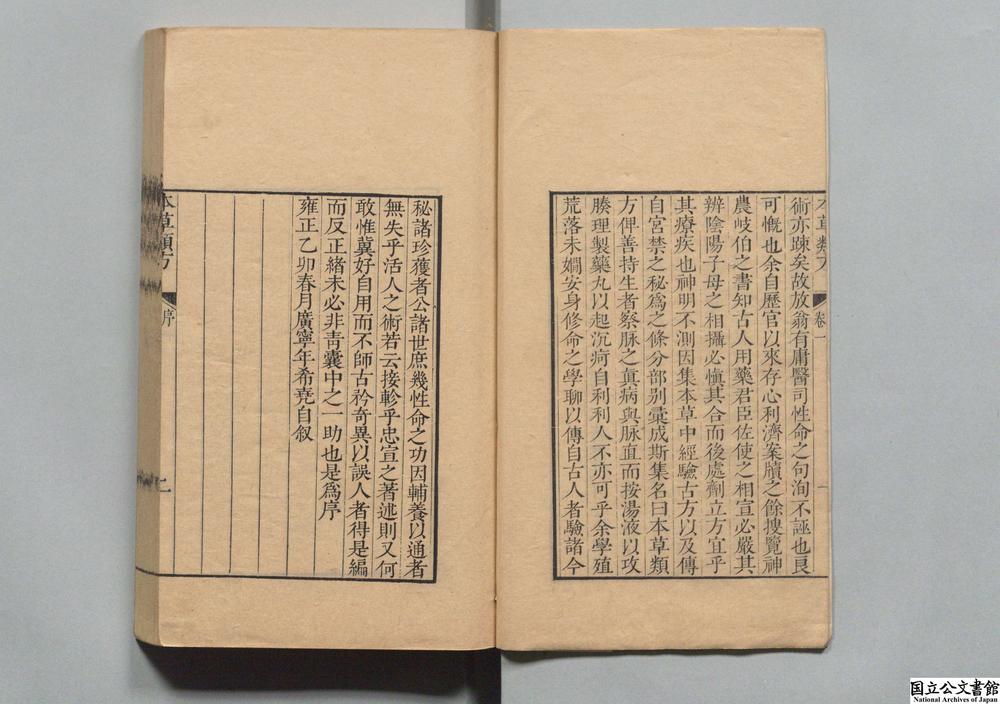 本草類方
卷一
一
術亦踈矣故放翁有庸醫司性命之句洵不誣也良
可慨也余自歷官以來存心利濟案牘之餘搜覽神
農岐伯之書知古人用藥君臣佐使之相宣必嚴其
辨陰陽子母之相攝必慎其合而後處劑立方宜乎
其療疾也神明不測因集本草中經驗古方以及傳
自宮禁之秘爲之條分部别彙成斯集名曰本草類
方俾善持生者察脉之眞病與脉直而按湯液以攻
腠理製藥丸以起沉疴自利利人不亦可乎余學殖
荒落未嫺安身修命之學聊以傳自古人者驗諸今
秘諸珍獲者公諸世庶幾性命之功因輔養以通者
無失乎活人之術若云接軫乎忠宣之著述則又何
敢惟冀好自用而不師古矜奇異以誤人者得是編
而反正緒未必非靑囊中之一助也是爲序
雍正乙卯春月廣寧年希堯自叙
本草類方
序
二
国立公文書館
National Archives of Japan